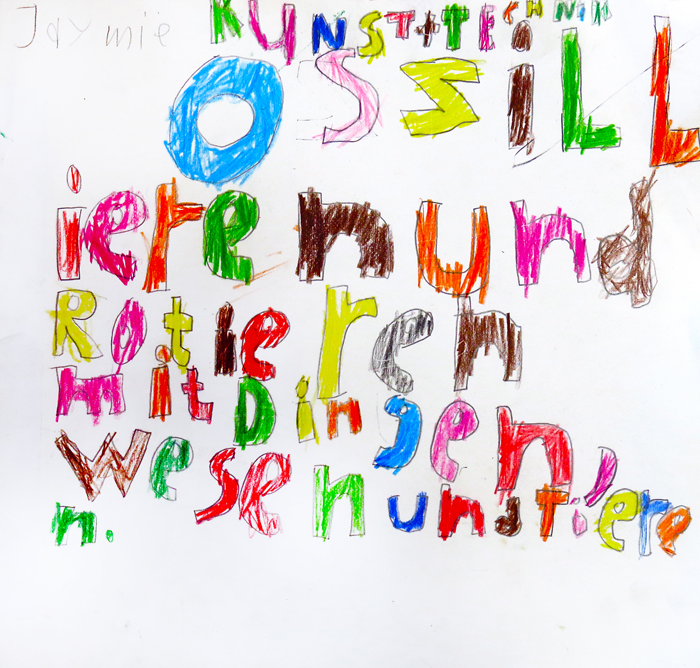 Jaymie
KUNST+TEcHNIK
OSZiLL
ieren und
Rotieren
mit Dingen,
Wesen und Tiere
n.